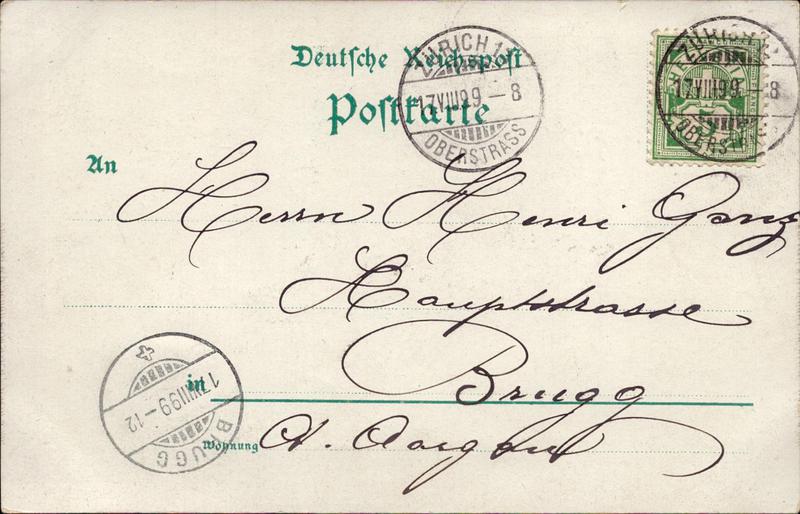 Deutsche Reichspost
Postkarte
ZÜRICH 1
17.VIII.99.–8
OBERSTRASS
ZÜRICH 1
17.VIII.99.–8
OBERSTRASS
5
An
Herrn Henri Ganz
Hauptstrasse
in Brugg
Wohnung Ct. Aargau
BRUGG
17.VIII.99.–12